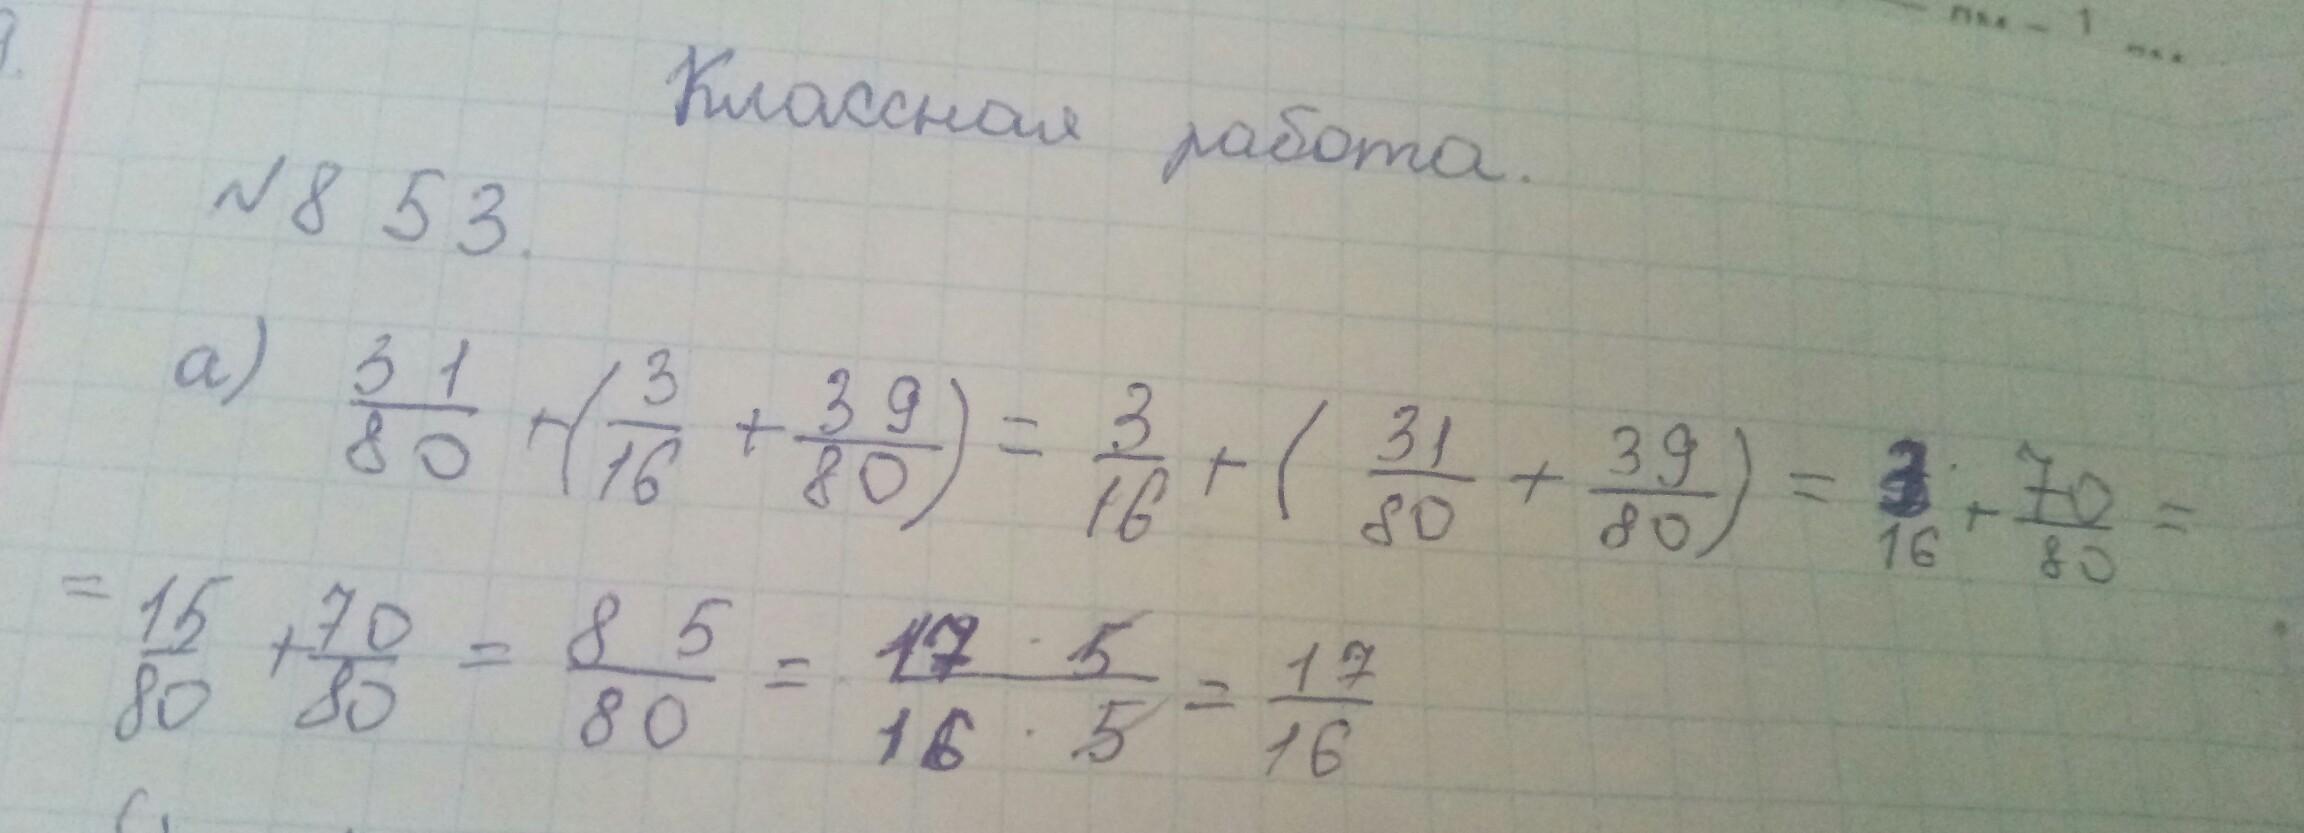 Классная работа.
№ 853.
а) 31/80 + (3/16 + 39/80) = 3/16 + (31/80 + 39/80) = 3/16 + 70/80 =
= 15/80 + 70/80 = 85/80 = 17 · 5/16 · 5 = 17/16